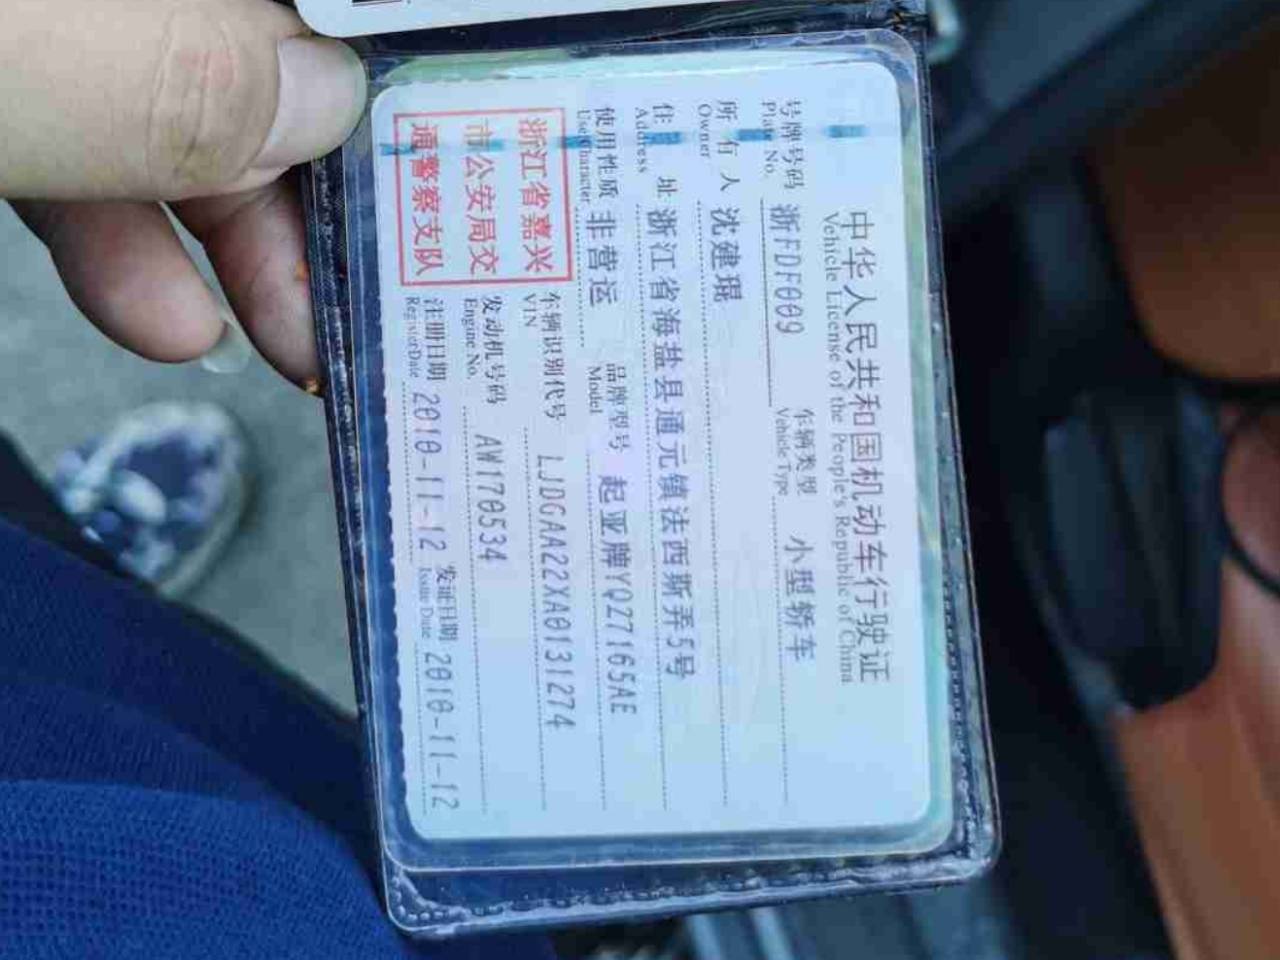 中华人民共和国机动车行驶证
Vehicle License of the People's Republic of China
号牌号码 浙FDF009 车辆类型 小型轿车
Plate No. Vehicle Type
所有人 沈建琨
Owner
住址 浙江省海盐县通元镇法西斯弄5号
Address
使用性质 非营运 品牌型号 起亚牌YQZ7165AE
Use Character Model
浙江省嘉兴
市公安局交
通警察支队
车辆识别代号 LJDGAA22XA0131274
VIN
发动机号码 AW170534
Engine No.
注册日期 2010-11-12 发证日期 2010-11-12
Register Date Issue Date